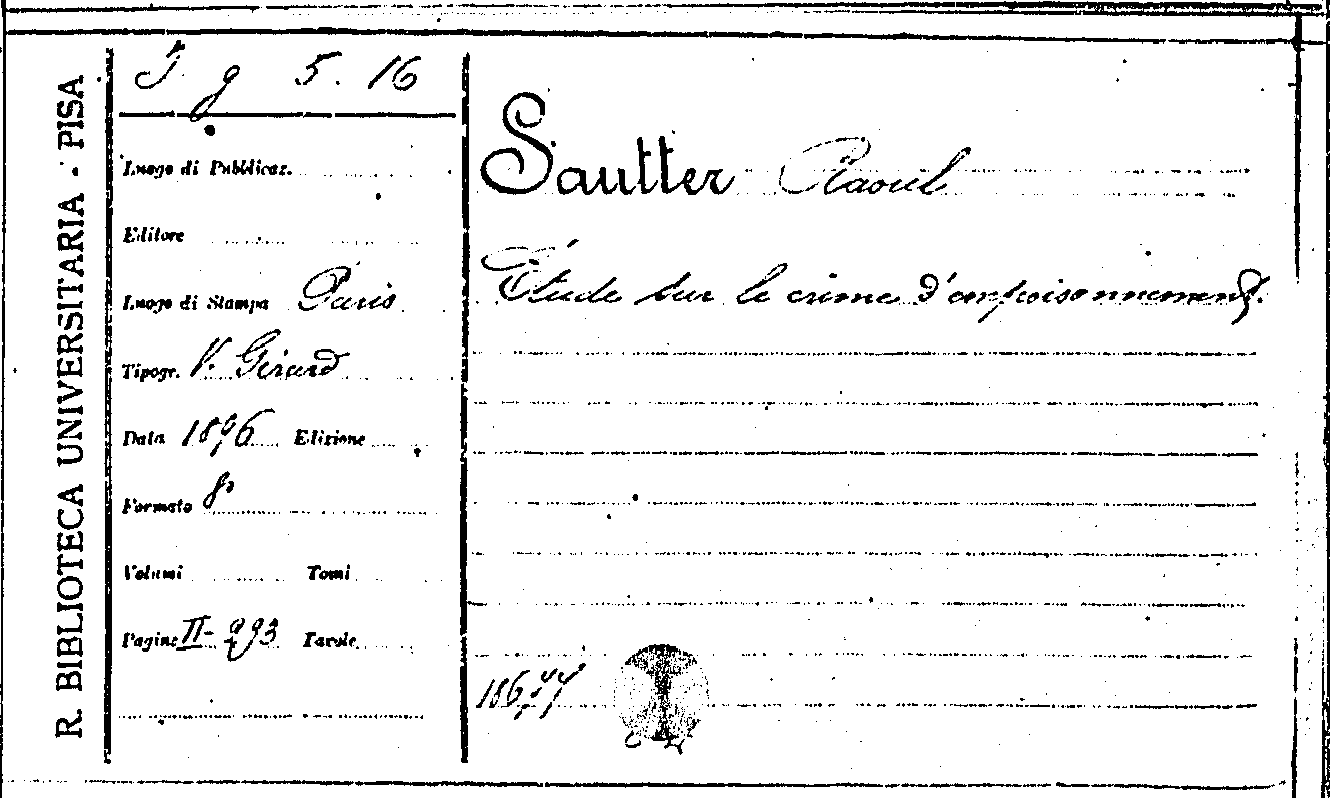 R. BIBLIOTECA UNIVERSITARIA - PISA
g 5. 16
Luogo di Pubblicaz.
Editore
Luogo di Stampa Paris
Tipogr. V. Girard
Data 1896 Edizione
Formato 8°
Volumi Tomi
Pagine II- Tavole
Sautter Raoul
Étude sur le crime d'empoisonnement.